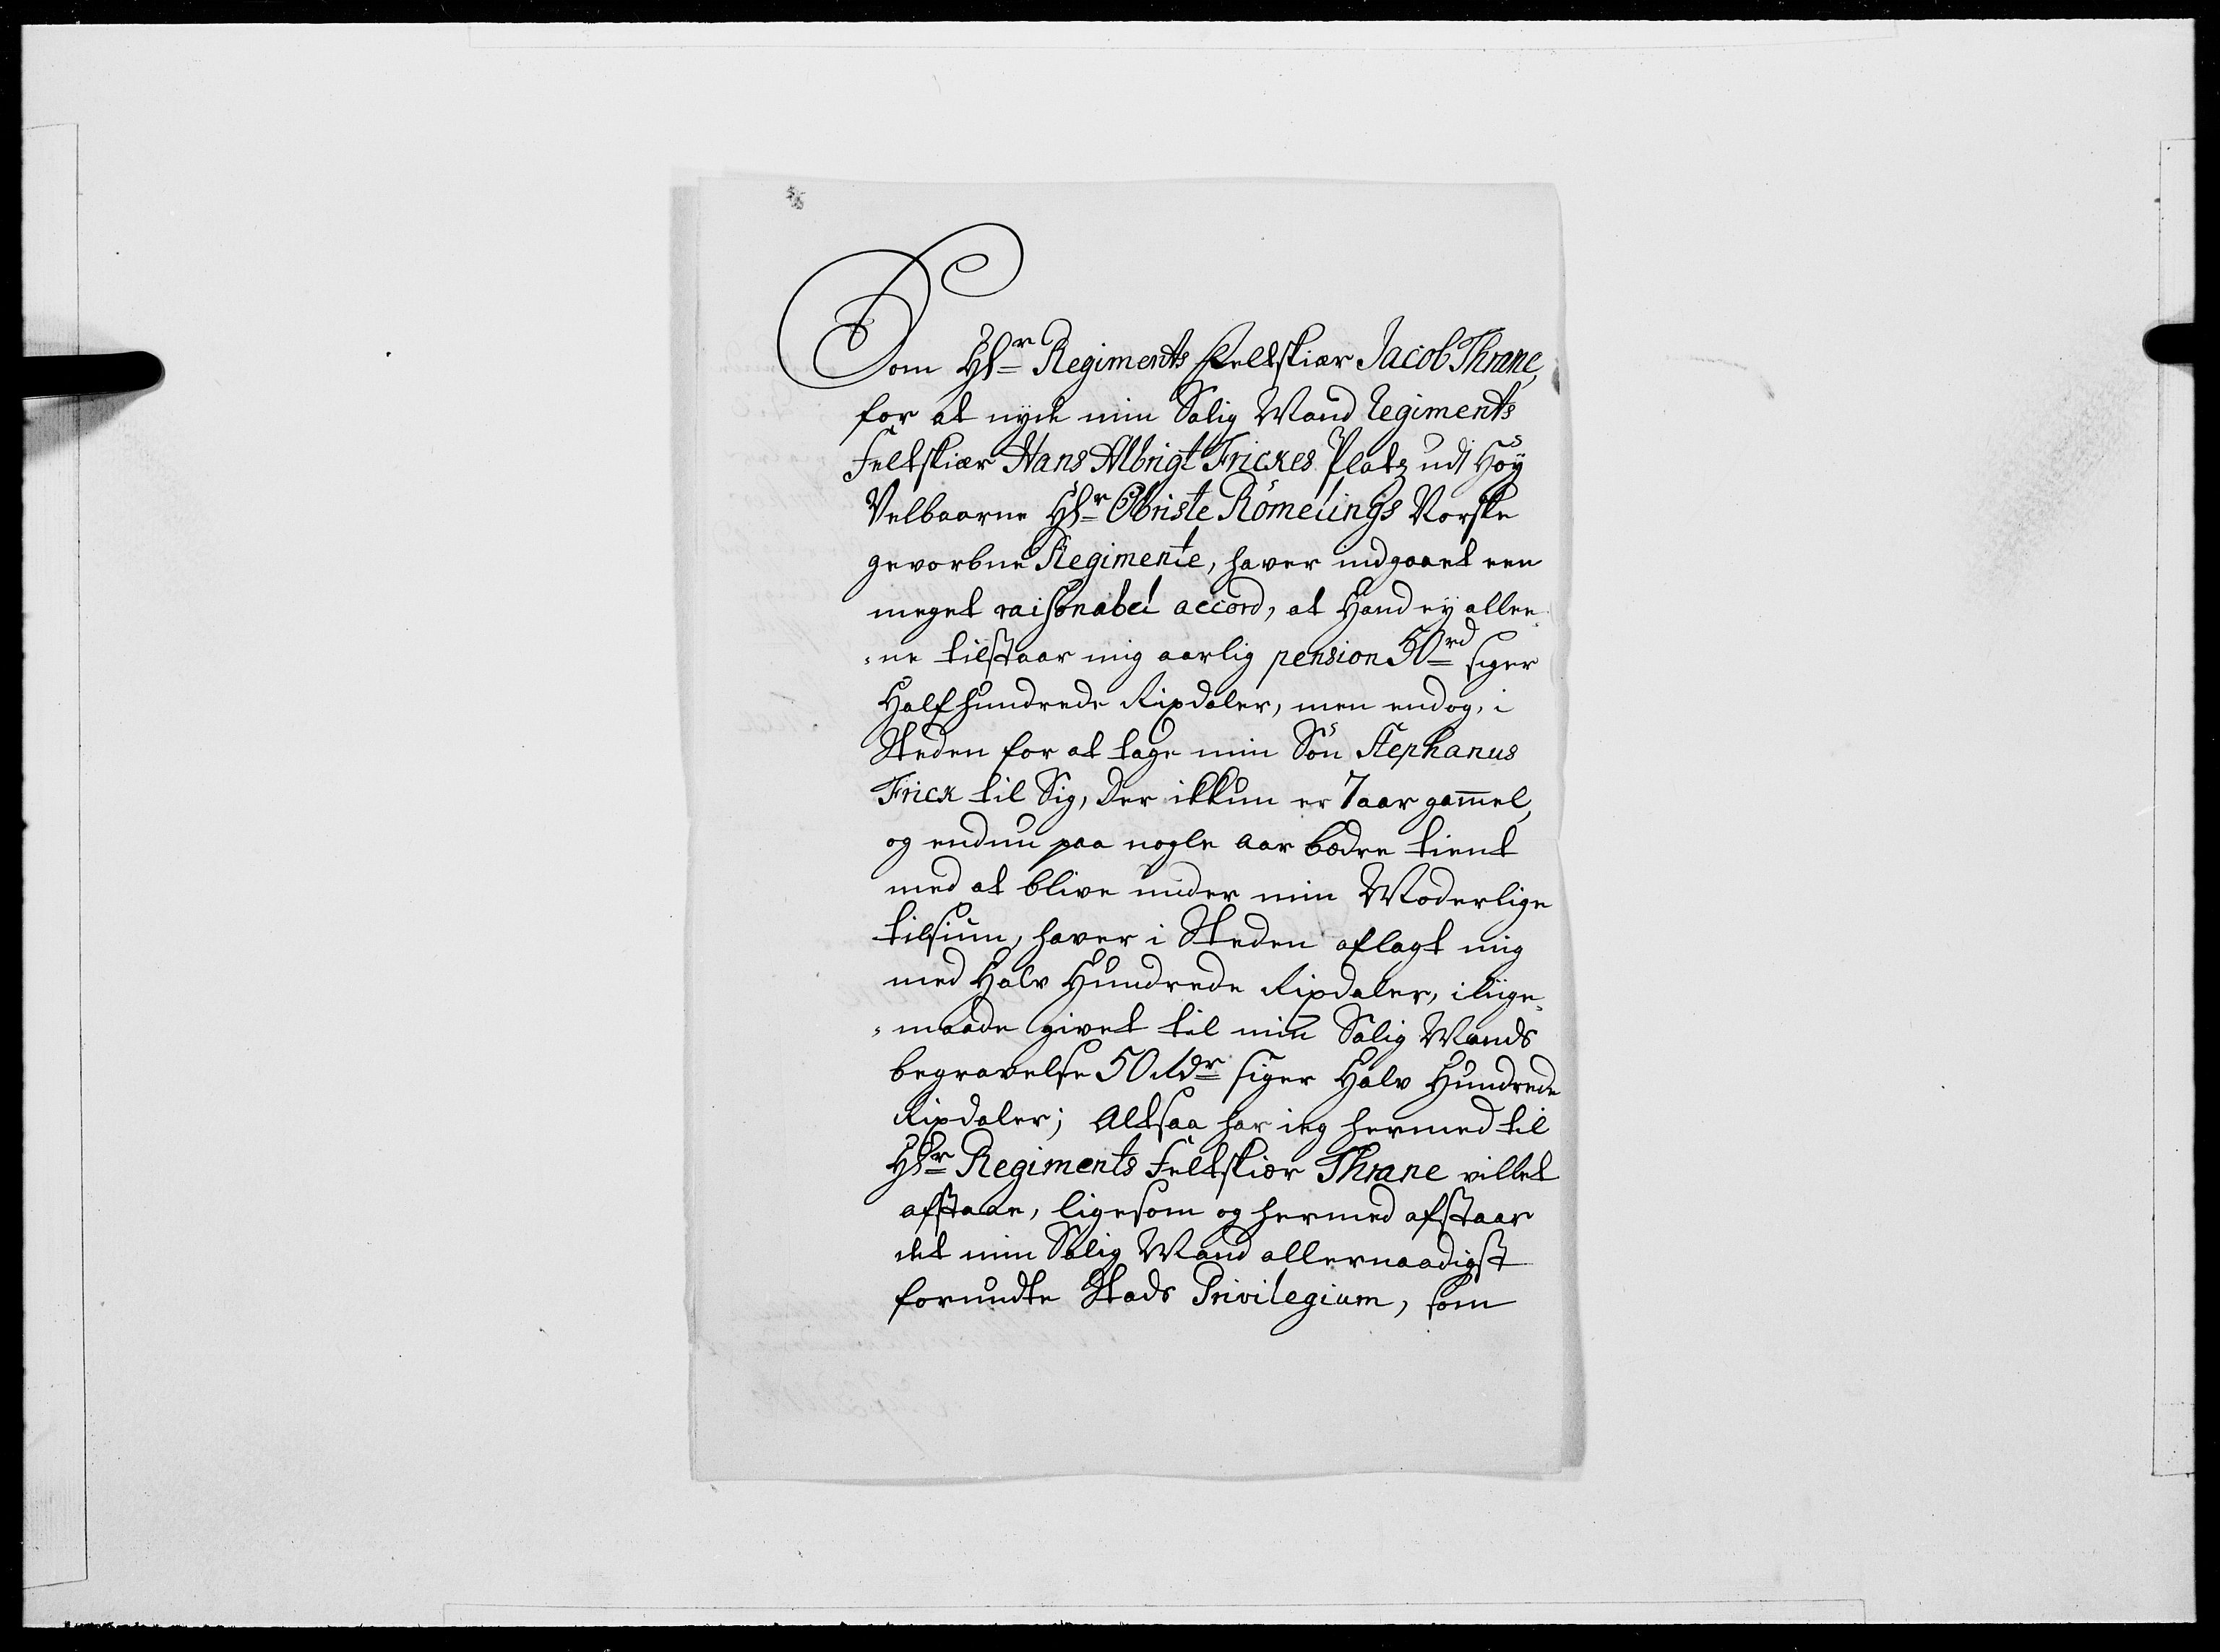 Som Hr. Regiments Feltskiær Jacob Thrane,
for at nyde min Salig Mand Regiments
Feltskiær Hans Albrigt Frickes Platz udi Höÿ
Velbaarne Hr. Obriste Römelings Norske
gevorbne Regimente, haver indgaaet een
meget raisonabel accord, at Hand eÿ allee„
„ne tilstaar mig aarlig pension 50 rd siger
Half hundrede Rixdaler, men endog, i
Steden for at tage min Sön Stephanus
Frick til Sig, der ikkun er 7 aar gam̄el,
og endnu paa nogle Aar bædre tient
med at blive under min Moderlige
tilsiun, haver i Steden aflagt mig
med Halv Hundrede Rixdaler, i liige„
„maade givet til min Salig Mands
begravelse 50 Rdr siger Halv Hundrede
Rixdaler; Altsaa har ieg hermed til
Hr. Regiments Feltskiær Thrane villet
afstaae, ligesom og hermed afstaar
det min Salig Mand allernaadigst
forundte Stads Privilegium, som